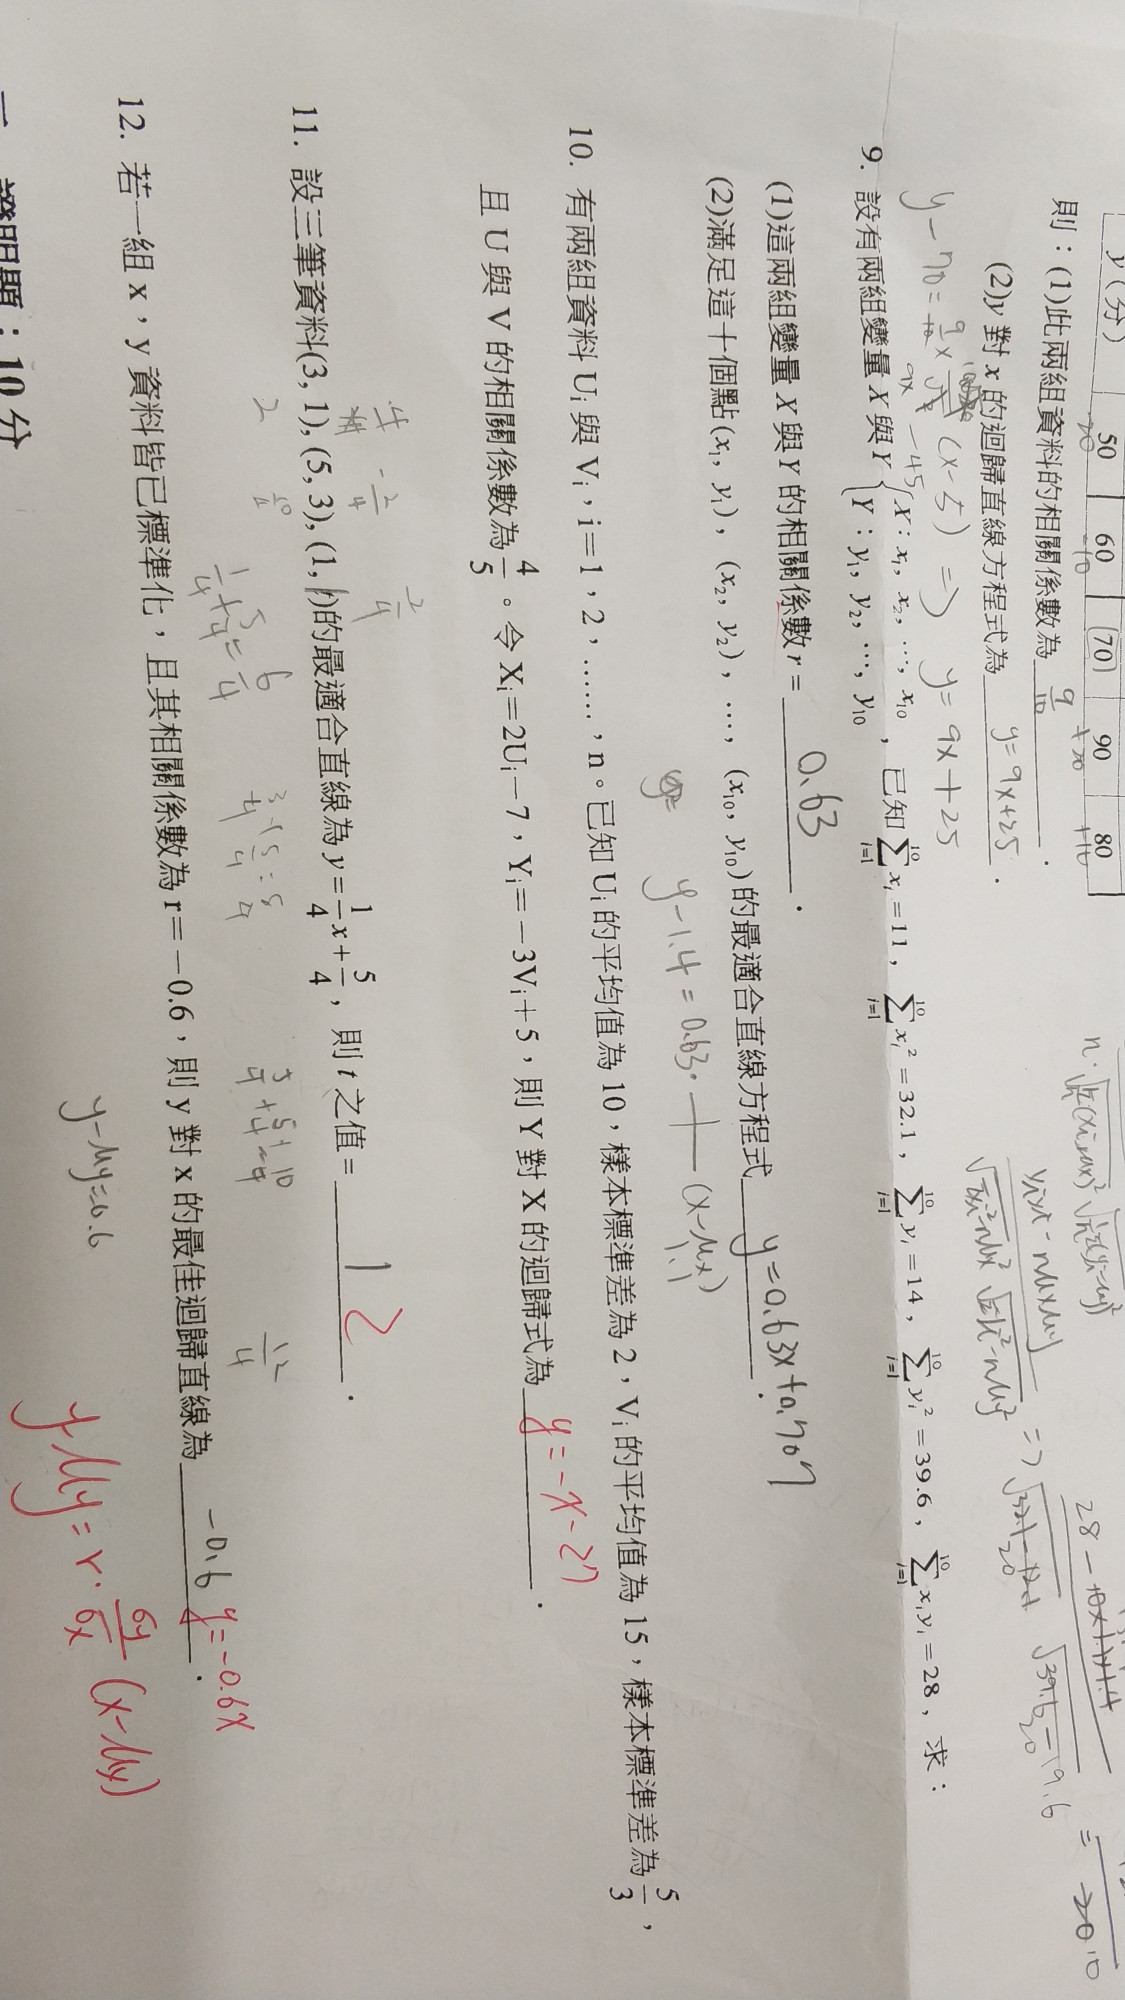 y(分) 50 60 (70) 90 80
-20 -10 +20 +10
則：(1)此兩組資料的相關係數為 9/10 .
(2)y 對 x 的迴歸直線方程式為 y=9x+25 .
y-70= (x-5) => y=9x+25
9x -45
28
= 19.6
9. 設有兩組變量 X 與 Y { X：x₁, x₂, …, x₁₀ , Y：y₁, y₂, …, y₁₀ 已知 ∑xᵢ=11, ∑xᵢ²=32.1, ∑yᵢ=14, ∑yᵢ²=39.6, ∑xᵢyᵢ=28, 求：
(1)這兩組變量 X 與 Y 的相關係數 r= 0.63 .
(2)滿足這十個點(x₁, y₁), (x₂, y₂), …, (x₁₀, y₁₀)的最適合直線方程式 y=0.63x+0.707 .
y-1.4=0.63· (x-μx)
1.1
10. 有兩組資料 Uᵢ 與 Vᵢ，i＝1，2，……，n。已知 Uᵢ 的平均值為 10，樣本標準差為 2，Vᵢ 的平均值為 15，樣本標準差為 5/3，
且 U 與 V 的相關係數為 4/5。令 Xᵢ＝2Uᵢ－7，Yᵢ＝－3Vᵢ＋5，則 Y 對 X 的迴歸式為 y=-x-27 .
11. 設三筆資料(3, 1), (5, 3), (1, t)的最適合直線為 y=1/4 x+5/4，則 t 之值= 1 2 .
1/4+5/4=6/4
3/4+5/4=8/4
5/4+5/4=10/4
12/4
12. 若一組 x，y 資料皆已標準化，且其相關係數為 r＝－0.6，則 y 對 x 的最佳迴歸直線為 -0.6 y=-0.6x .
y-μy=0.6
y-μy=r·6y/6x (x-μx)
證明題：10 分